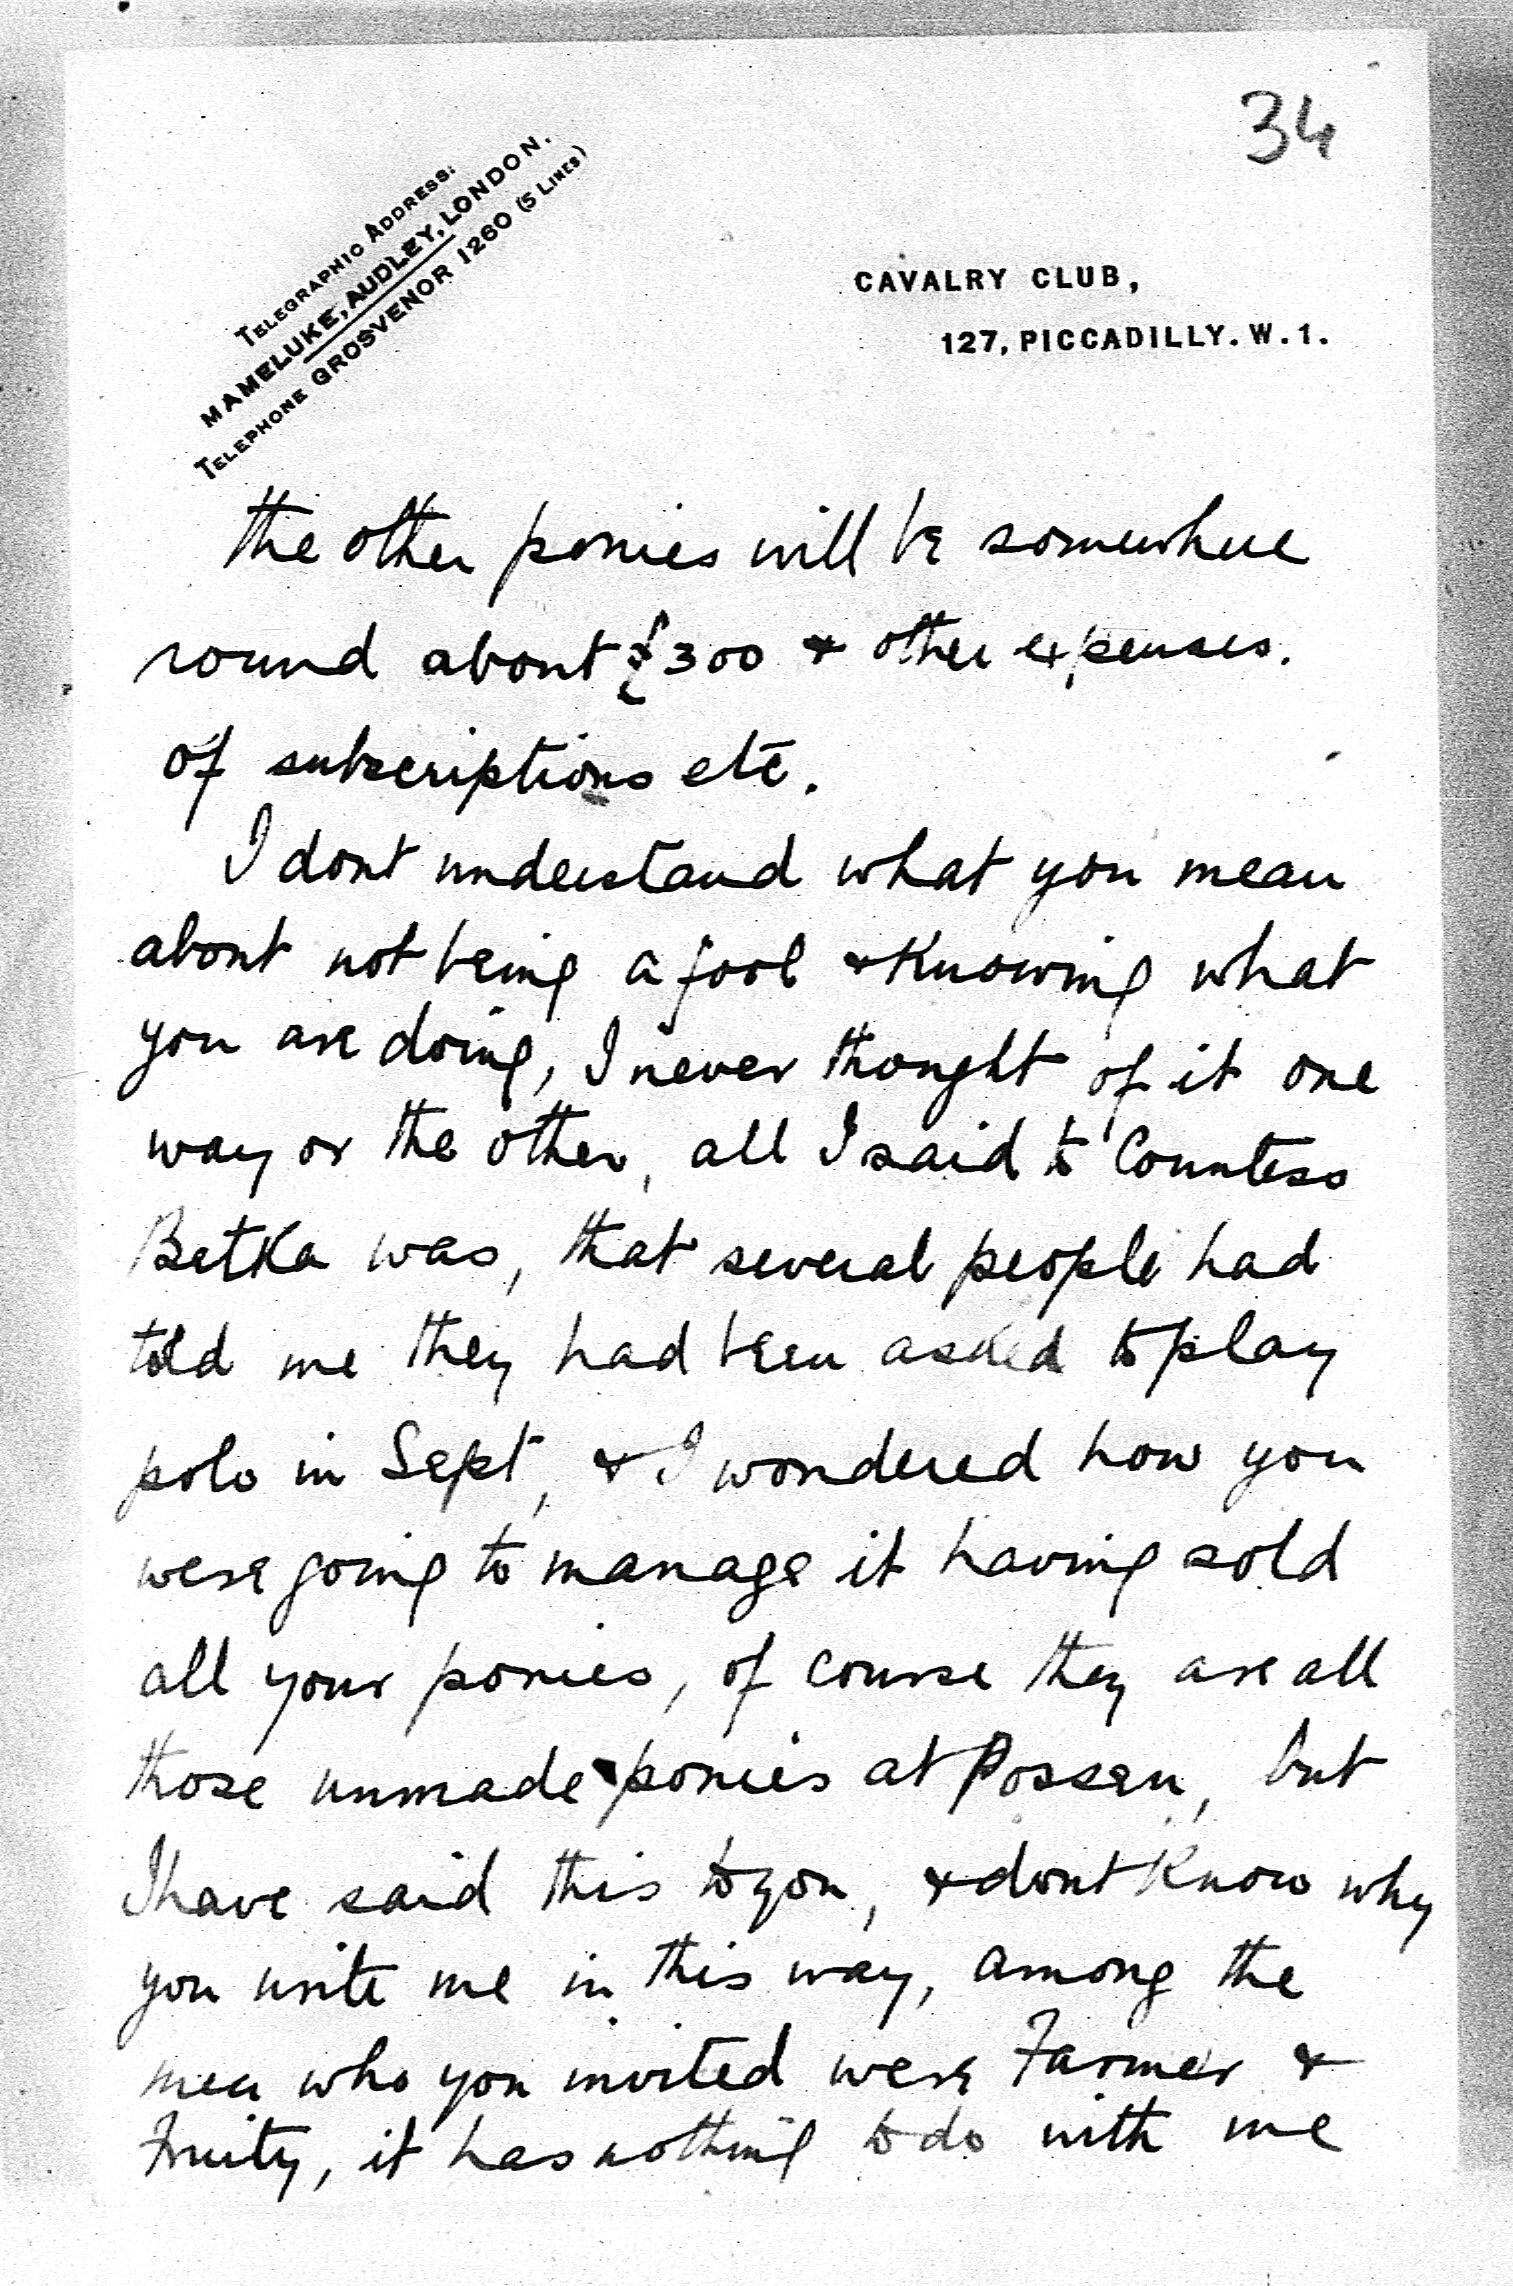 34
TELEGRAPHIC ADDRESS:
MAMELUKE, AUDLEY, LONDON.
TELEPHONE GROSVENOR 1260 (5 LINES)
CAVALRY CLUB,
127, PICCADILLY. W. 1.
the other ponies will be somewhere
round about £300 & other expenses.
of subscriptions etc.
I dont understand what you mean
about not being a fool & knowing what
you are doing, I never thought of it one
way or the other, all I said to Countess
Betka was, that several people had
told me they had been asked to play
polo in Sept, & I wondered how you
were going to manage it having sold
all your ponies, of course they are all
those unmade ponies at Possen, but
I have said this to you, & dont know why
you write me in this way, among the
men who you invited were Farmer &
Fruity, it has nothing to do with me